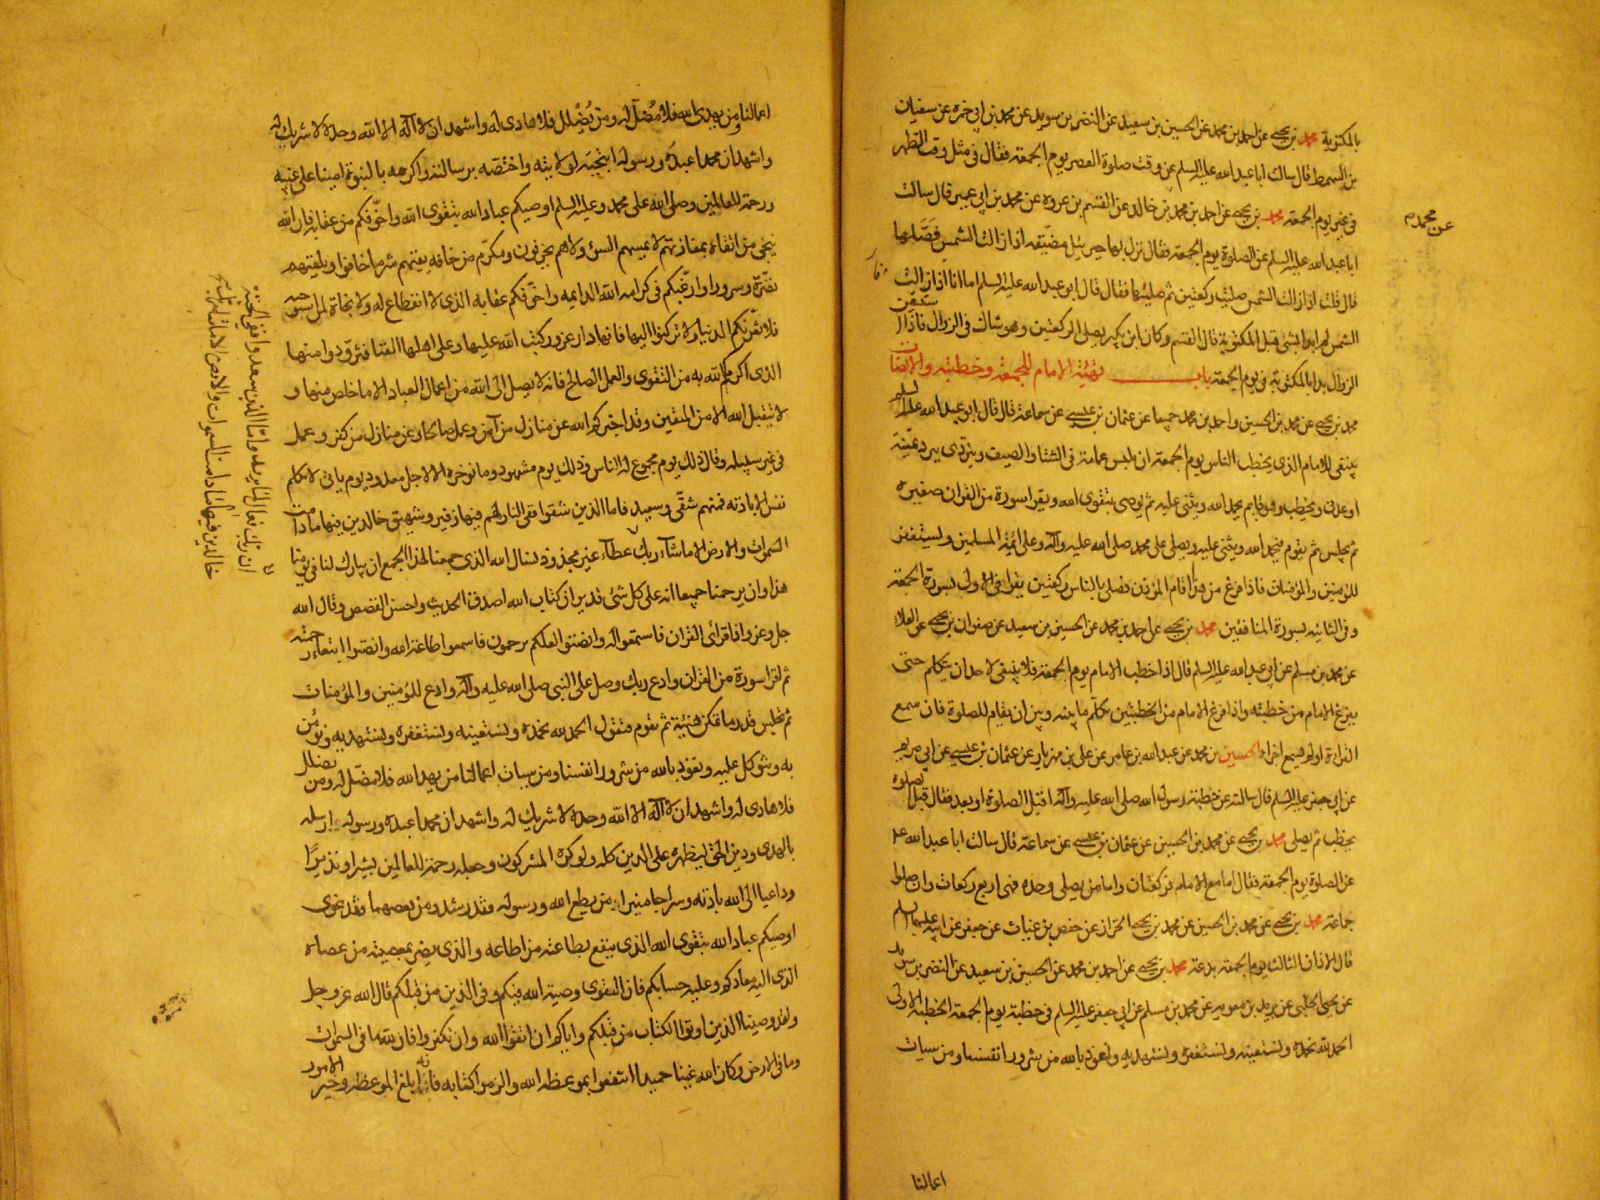 بالمكتوبة محمد بن يحيى عن احمد بن محمد عن الحسين بن سعيد عن النضر بن سويد عن محمد بن ابى حمزه عن سفيان
بن السمط قال سالت ابا عبد الله عليه السلم عن وقت صلوة العصر يوم الجمعة فقال فى مثل وقت الظهر
فى غير يوم الجمعة محمد بن يحيى عن احمد بن محمد بن خالد عن القسم بن عروه عن محمد بن ابى عمير قال سالت
عن محمد م
ابا عبد الله عليه السلم عن الصلوة يوم الجمعة فقال نزل بها جبرئيل مضيّقه اذا زالت الشمس فصَلّها
قال قلت اذا زالت الشمس صليت ركعتين ثم صليتها فقال قال ابو عبد الله عليه السلم اما انا اذا زالت
الشمس لم ابدا بشئ قبل المكتوبة قال القسم وكان ابن بكير يصلى الركعتين وهو شاك فى الزوال فاذا استيقن
الزوال بدا بالمكتوبة فى يوم الجمعة باب تهيئة الامام للجمعة وخطبته والانصات
محمد بن يحيى عن محمد بن الحسين واحمد بن محمد جميعا عن عثمان بن عيسى عن سماعة قال قال ابو عبد الله عليه السلم
ينبغى للامام الذى يخطب الناس يوم الجمعة ان يلبس عمامة فى الشتا والصيف ويتردى ببرد يمنيّة
او عدنى ويخطب وهو قايم يحمد الله ويثنى عليه ثم يوصى بتقوى الله ويقرا سورة من القران صغيره
ثم يجلس ثم يقوم فيحمد الله ويثنى عليه ويصلى على محمد صلى الله عليه وآله وعلى ائمة المسلمين ويستغفر
للمؤمنين والمؤمنات فاذا فرغ من هذا اقام المؤذن فصلى بالناس ركعتين يقرا فى الاولى بسورة الجمعة
وفى الثانيه بسورة المنافقين محمد بن يحيى عن احمد بن محمد عن الحسين بن سعيد عن صفوان بن يحيى عن العلا
عن محمد بن مسلم عن ابى عبد الله عليه السلم قال اذا خطب الامام يوم الجمعة فلا ينبغى لاحد ان يتكلم حتى
يفرغ الامام من خطبته واذا فرغ الامام من الخطبتين تكلم ما بينه وبين ان يقام للصلوة فان سمع
القراءة او لم يسمع اجزاه الحسين بن محمد عن عبد الله بن عامر عن على بن مهزيار عن عثمان بن عيسى عن ابى مريم
عن ابى جعفر عليه السلم قال سالته عن خطبة رسول الله صلى الله عليه وآله اقبل الصلوة او بعد فقال قبل الصلوة
يخطب ثم يصلى محمد بن يحيى عن محمد بن الحسين عن عثمان بن عيسى عن سماعة قال سالت ابا عبد الله ع
عن الصلوة يوم الجمعة فقال اما مع الامام فركعتان واما من يصلى وحده فهى اربع ركعات وان صلوا
جماعة محمد بن يحيى عن محمد بن الحسين عن محمد بن يحيى الخزاز عن حفص بن غياث عن جعفر عن ابيه عليهما السلم
قال الاذان الثالث يوم الجمعة بدعة محمد بن يحيى عن احمد بن محمد عن الحسين بن سعيد عن النضر بن سويد
عن يحيى الحلبى عن بريد بن معويه عن محمد بن مسلم عن ابى جعفر عليه السلم فى خطبة يوم الجمعة الخطبة الاولى
الحمد لله نحمده ونستعينه ونستغفره ونستهديه ونعوذ بالله من شرور انفسنا ومن سيات
اعمالنا
اعمالنا من يهدى الله فلا مُضلّ له ومن يُضْلل فلا هادى له واشهد ان لا اله الا الله وحده لا شريك له
واشهد ان محمدا عبده ورسوله انتجبه لولايته واختصّه برسالته واكرمه بالنبوة امينا على غيبه
ورحمة للعالمين وصلى الله على محمد وعليه السلم اوصيكم عباد الله بتقوى الله واخوّفكم من عقابه فان الله
ينجى من اتقاه بمفازتهم لا يمسهم السوء ولا هم يحزنون ومكرّم من خافه يقيهم شر ما خافوا ويلقيهم
نضرة وسرورا وارغّبكم فى كرامة الله الدايمه واخوّفكم عقابه الذى لا انقطاع له ولا نجاة لمن استوجبه
فلا تغرّنكم الدنيا ولا تركنوا اليها فانها دار غرور كتب الله عليها وعلى اهلها الفنا فتزوّدوا منها
الذى اكرمكم الله به من التقوى والعمل الصالح فانه لا يصل الى الله من اعمال العباد الا ما خلص منها و
لا يتقبل الله الا من المتقين وقد اخبركم الله عن منازل من آمن وعمل صالحا وعن منازل من كفر وعمل
فى غير سبيله وقال ذلك يوم مجموع له الناس وذلك يوم مشهود وما نوخره الا لاجل معدود يوم ياتى لا تكلم
نفس الا باذنه فمنهم شقّى وسعيد فاما الذين شقوا ففى النار لهم فيها زفير وشهيق خالدين فيها ما دامت
السموات والارض الا ما شآء ربك عطآء غير مجذوذ نسال الله الذى جمعنا لهذا الجمع ان يبارك لنا فى يومنا
هذا وان يرحمنا جميعا انه على كل شئ قدير ان كتاب الله اصدق الحديث واحسن القصص وقال الله
جل وعز واذا قرئ القران فاستمعوا له وانصتوا لعلكم ترحمون فاسمعوا طاعة الله وانصتوا ابتغاء رحمته
ثم اقرا سورة من القران وادع ربك وصل على النبى صلى الله عليه وآله وادع للمؤمنين والمؤمنات
ثم تجلس قدر ما تمكن هنيئة ثم تقوم فتقول الحمد لله نحمده ونستعينه ونستغفره ونستهديه ونؤمن
به ونتوكل عليه ونعوذ بالله من شرور انفسنا ومن سيات اعمالنا من يهد الله فلا مضّل له ومن يضلل
فلا هادى له واشهد ان لا اله الا الله وحده لا شريك له واشهد ان محمدا عبده ورسوله ارسله
بالهدى ودين الحق ليظهره على الدين كله ولو كره المشركون وجعله رحمة للعالمين بشيرا ونذيرًا
وداعيا الى الله باذنه وسراجا منيرا من يطع الله ورسوله فقد رشد ومن يعصهما فقد غوى
اوصيكم عباد الله بتقوى الله الذى ينفع بطاعته من اطاعه والذى يضر بمعصيته من عصاه
الذى اليه معادكم وعليه حسابكم فان التقوى وصية الله فيكم وفى الذين من قبلكم قال الله عز وجل
ولقد وصينا الذين اوتوا الكتاب من قبلكم واياكم ان اتقوا الله وان تكفروا فان لله ما فى السموات
وما فى الارض وكان الله غنيا حميدا انتفعوا بموعظة الله والزموا كتابه فانه ابلغ الموعظة وخير الامور
ان ربك فعال لما يريد واما الذين سعدوا ففى الجنة
خالدين فيها ما دامت السموات والارض الا ما شاء ربك